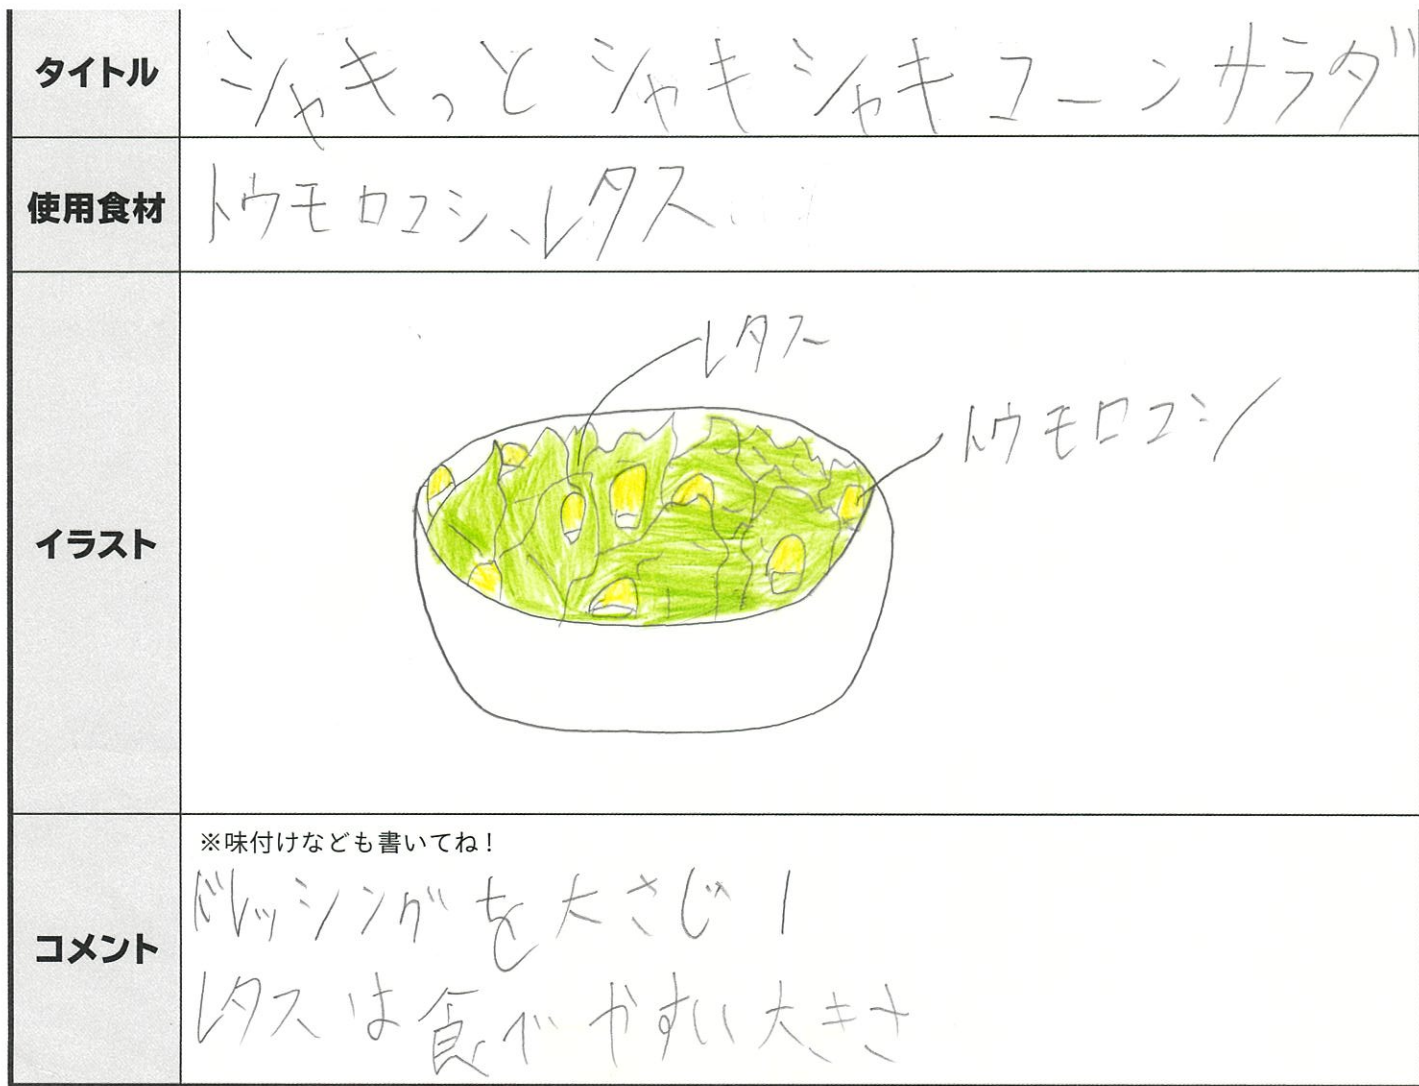 タイトル
シャキっとシャキシャキコーンサラダ
使用食材
トウモロコシ、レタス
イラスト
レタス
トウモロコシ
コメント
※味付けなども書いてね！
ドレッシングを大さじ1
レタスは食べやすい大きさ